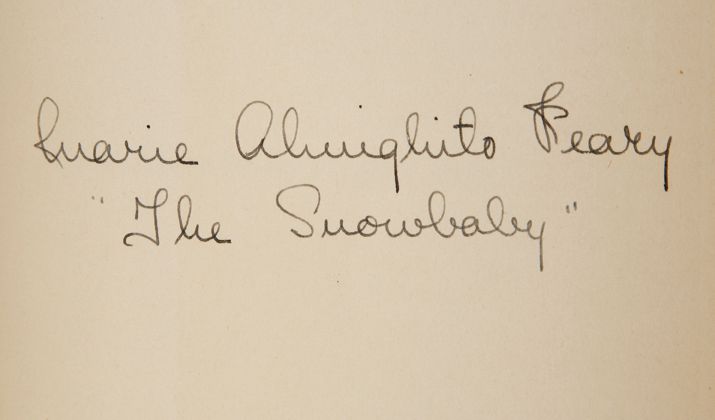 Marie Ahnighito Peary
"The Snowbaby"